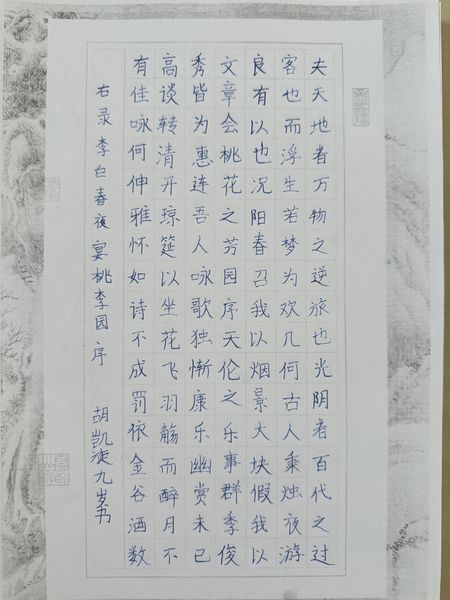 夫天地者万物之逆旅也光阴者百代之过
客也而浮生若梦为欢几何古人秉烛夜游
良有以也况阳春召我以烟景大块假我以
文章会桃花之芳园序天伦之乐事群季俊
秀皆为惠连吾人咏歌独惭康乐幽赏未已
高谈转清开琼筵以坐花飞羽觞而醉月不
有佳咏何伸雅怀如诗不成罚依金谷酒数
右录李白春夜宴桃李园序 胡凯旋九岁书